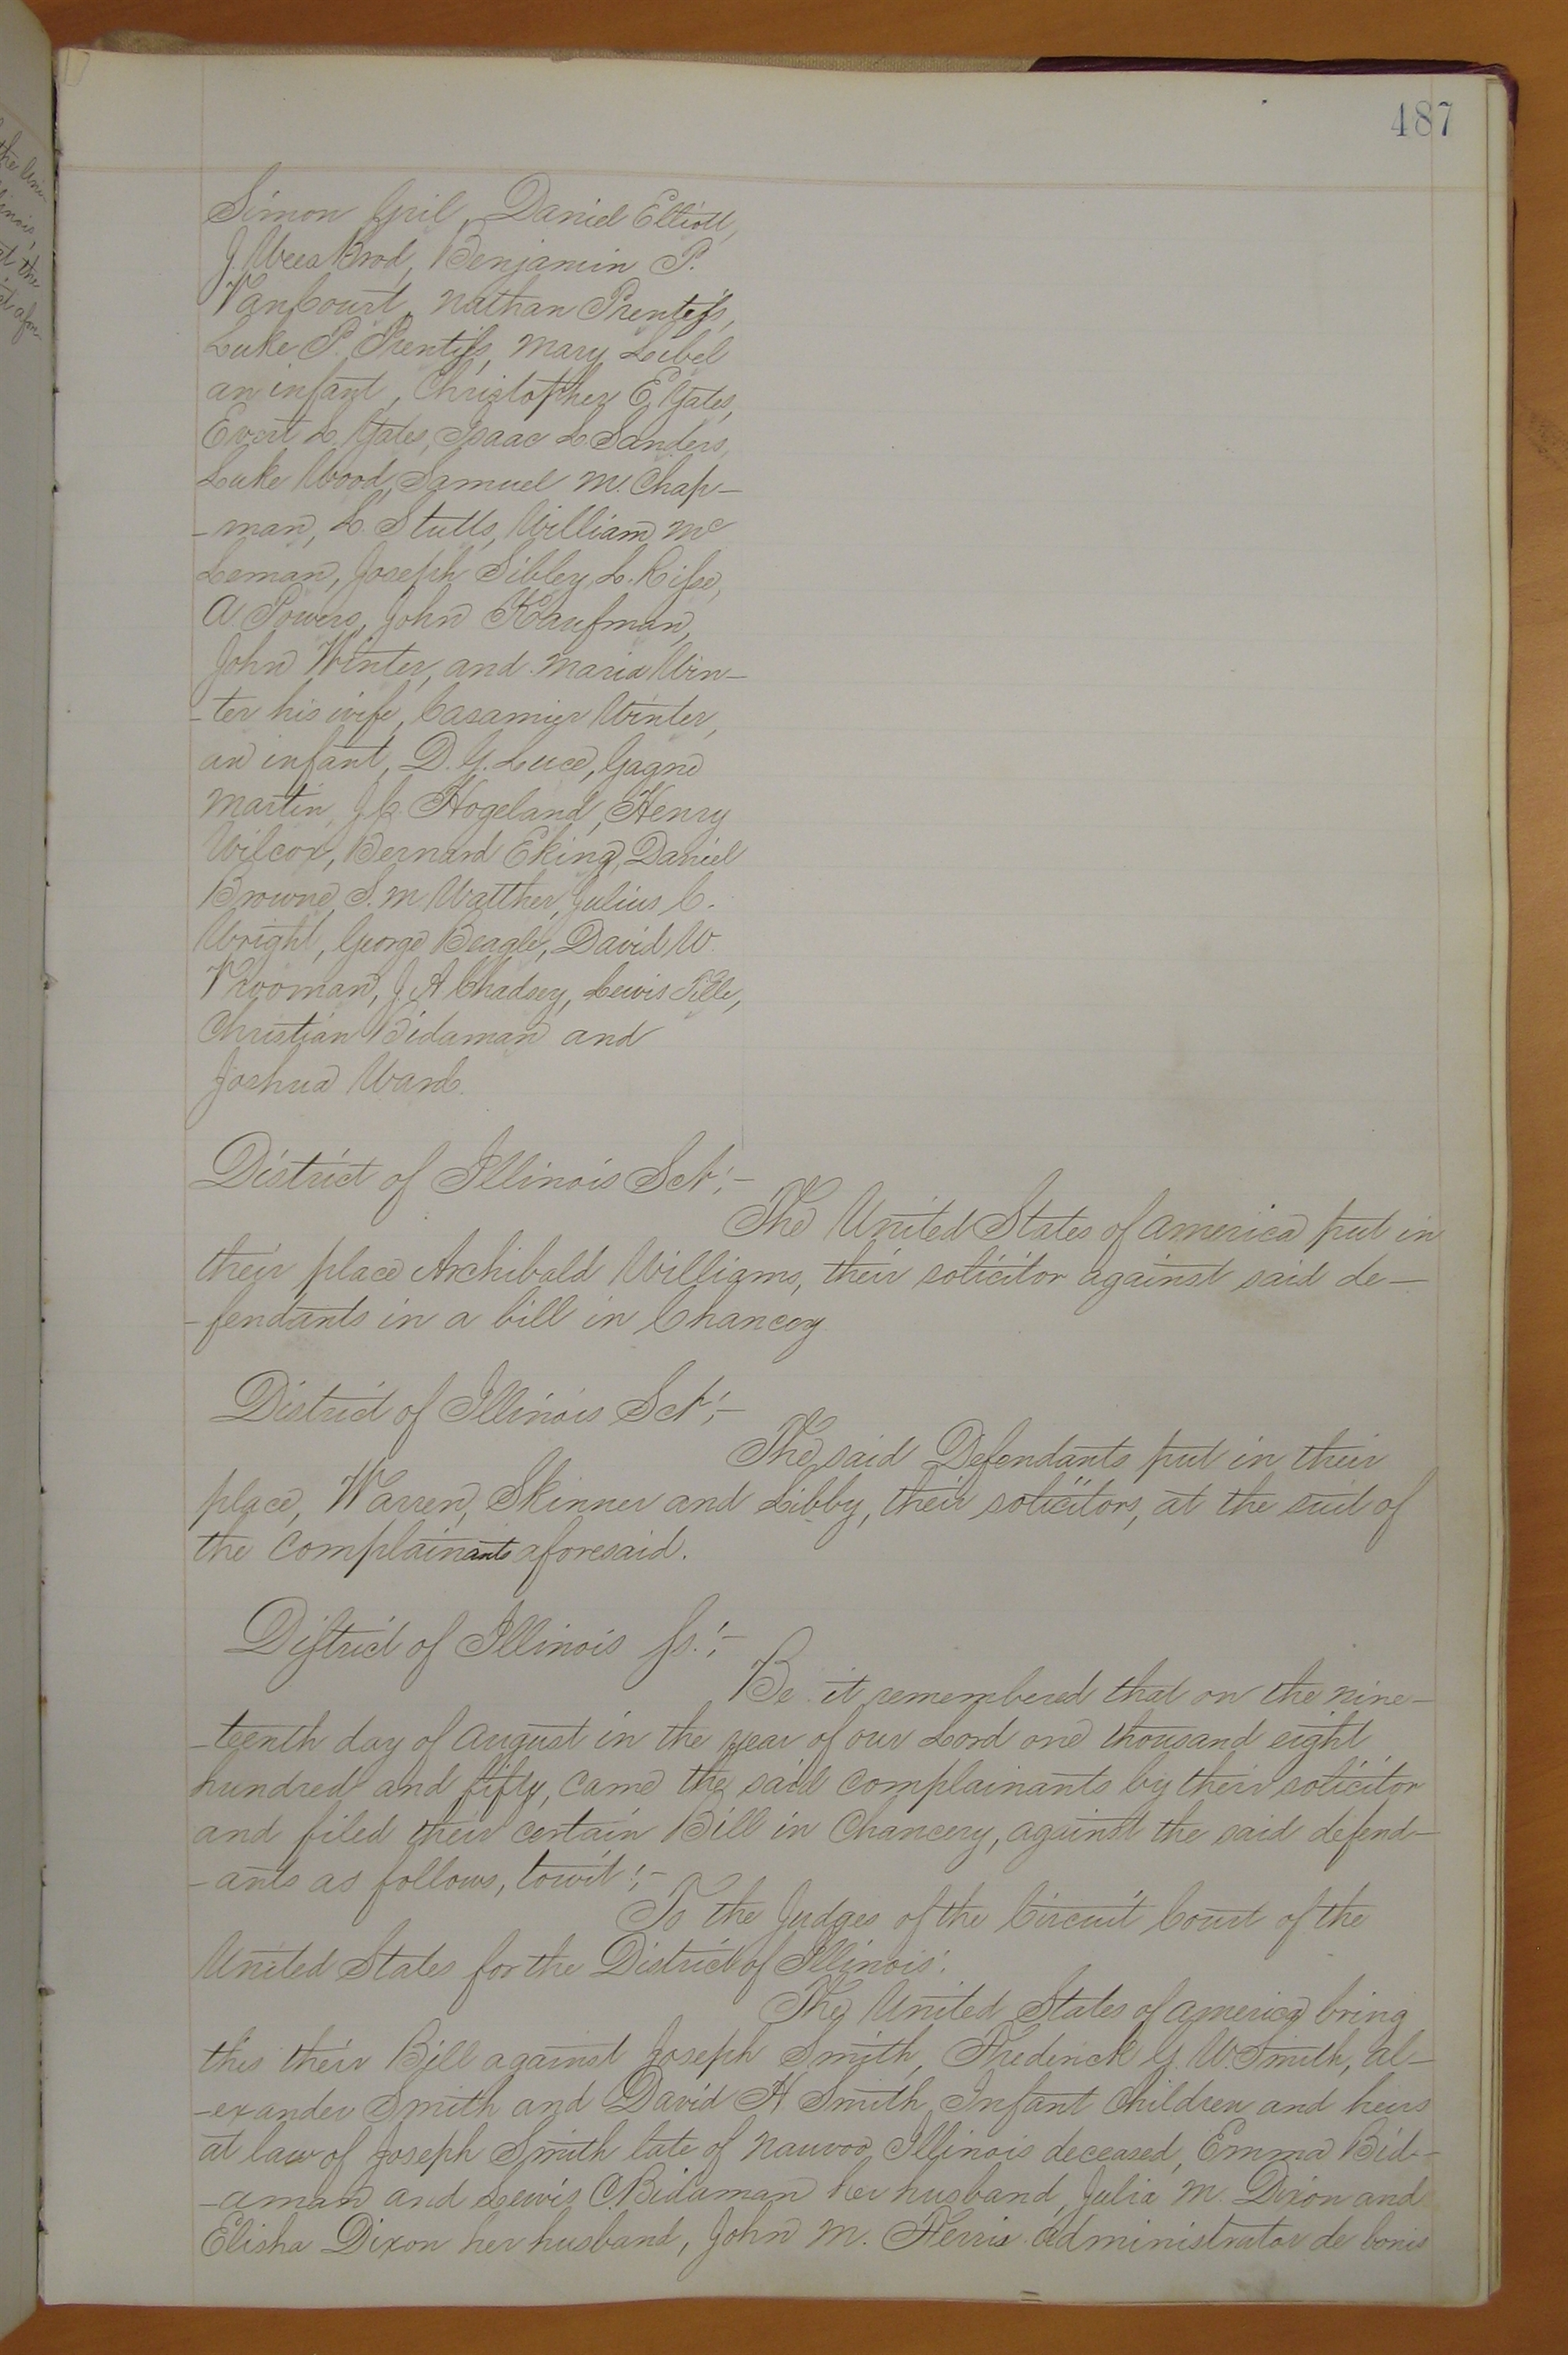 487
Simon Gril, Daniel Elliott,
J. Weea Brod, Benjamin P.
VanCourt, Nathan Prentiss,
Luke P. Prentiss, Mary Leibel
an infant, Christopher E Yates,
Evert L. Yates, Isaac L. Sanders,
Luke Wood, Samuel M. Chap-
-man, L. Stutts, William Mc
Leman, Joseph Sibley, L. Risse,
A Powers, John Kaufman,
John Winter, and Maria Win-
-ter his wife, Casamier Winter,
an infant, D. G. Luce, Gagne
Martin, J. C. Hogeland, Henry
Wilcox, Bernard Eking, Daniel
Browne, S. M. Walther, Julius C.
Wright, George Beagle, David W.
Vrooman, J. A Chadsey, Lewis Tille,
Christian Bidaman and
Joshua Ward.
District of Illinois Sct:-
The United States of America put in
their place Archibald Williams, their solicitor against said de-
-fendants in a bill in Chancery
District of Illinois Sct:-
The said Defendants put in their
place, Warren, Skinner and Libby, their solicitors, at the suit of
the complainants aforesaid.
District of Illinois ss.:-
Be it remembered that on the nine-
-teenth day of August in the year of our Lord one thousand eight
hundred and fifty, came the said complainants by their solicitor
and filed their certain Bill in Chancery, against the said defend-
-ants as follows, towit:-
To the Judges of the Circuit Court of the
United States for the District of Illinois:
The United States of America bring
this their Bill against Joseph Smith, Frederick G. W. Smith, Al-
-exander Smith and David H Smith, Infant Children and heirs
at law of Joseph Smith late of Nauvoo, Illinois deceased, Emma Bid-
-aman and Lewis C. Bidaman her husband, Julia M. Dixon and
Elisha Dixon her husband, John M. Ferris administrator de bonis